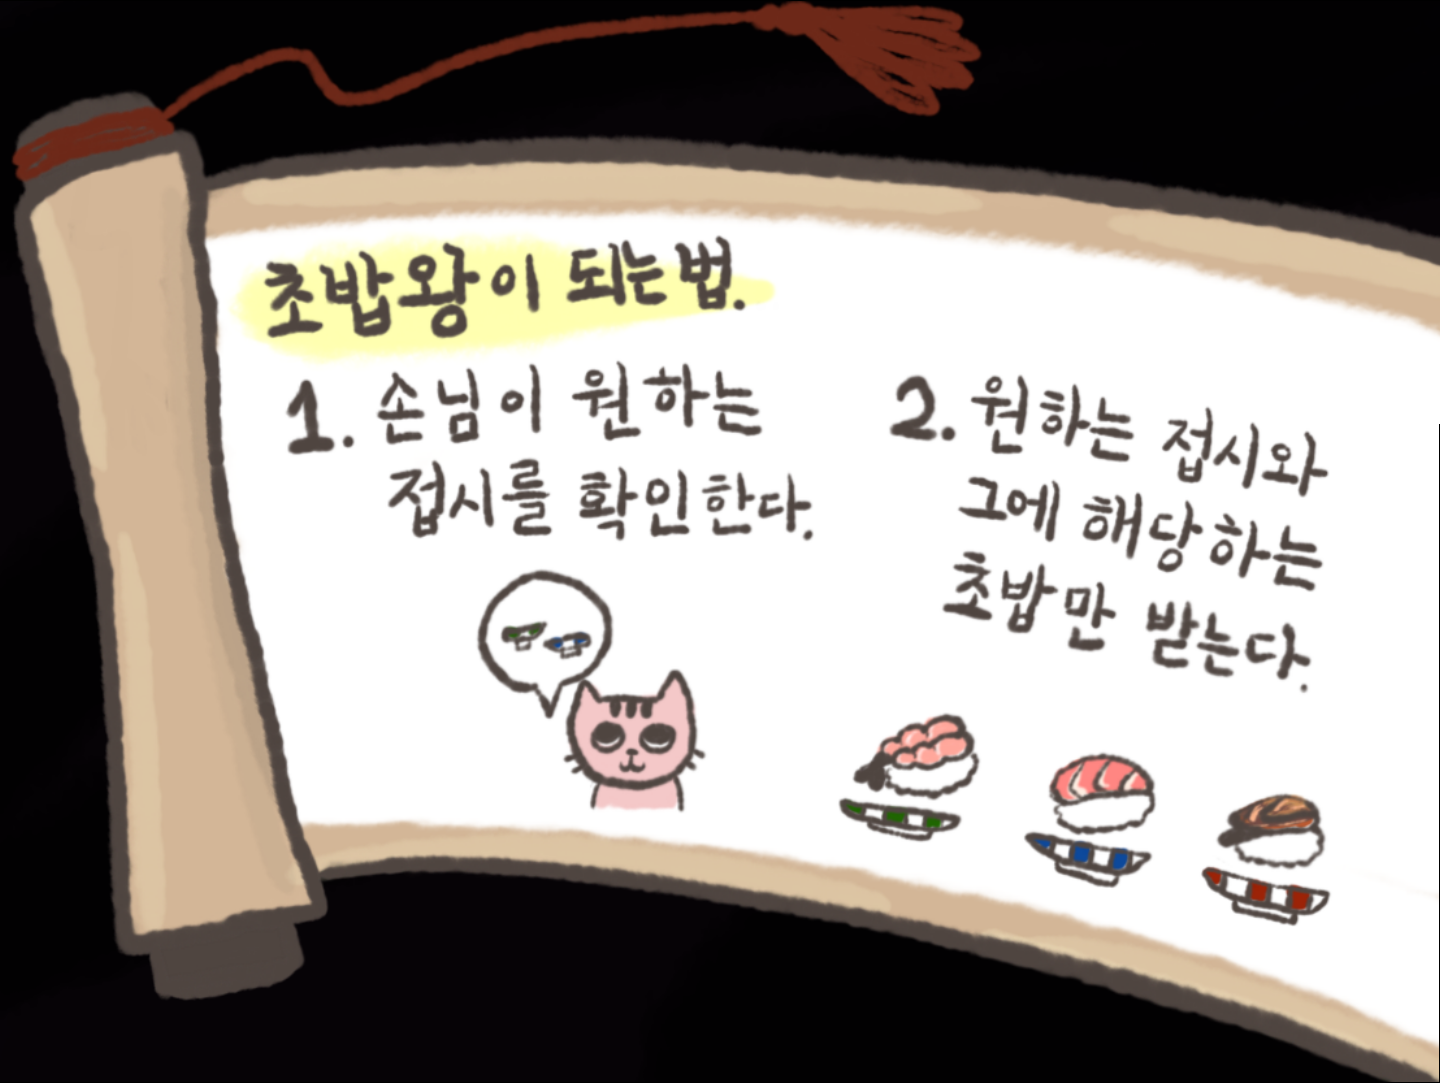 초밥왕이 되는법.
1. 손님이 원하는
접시를 확인한다.
2. 원하는 접시와
그에 해당하는
초밥만 받는다.